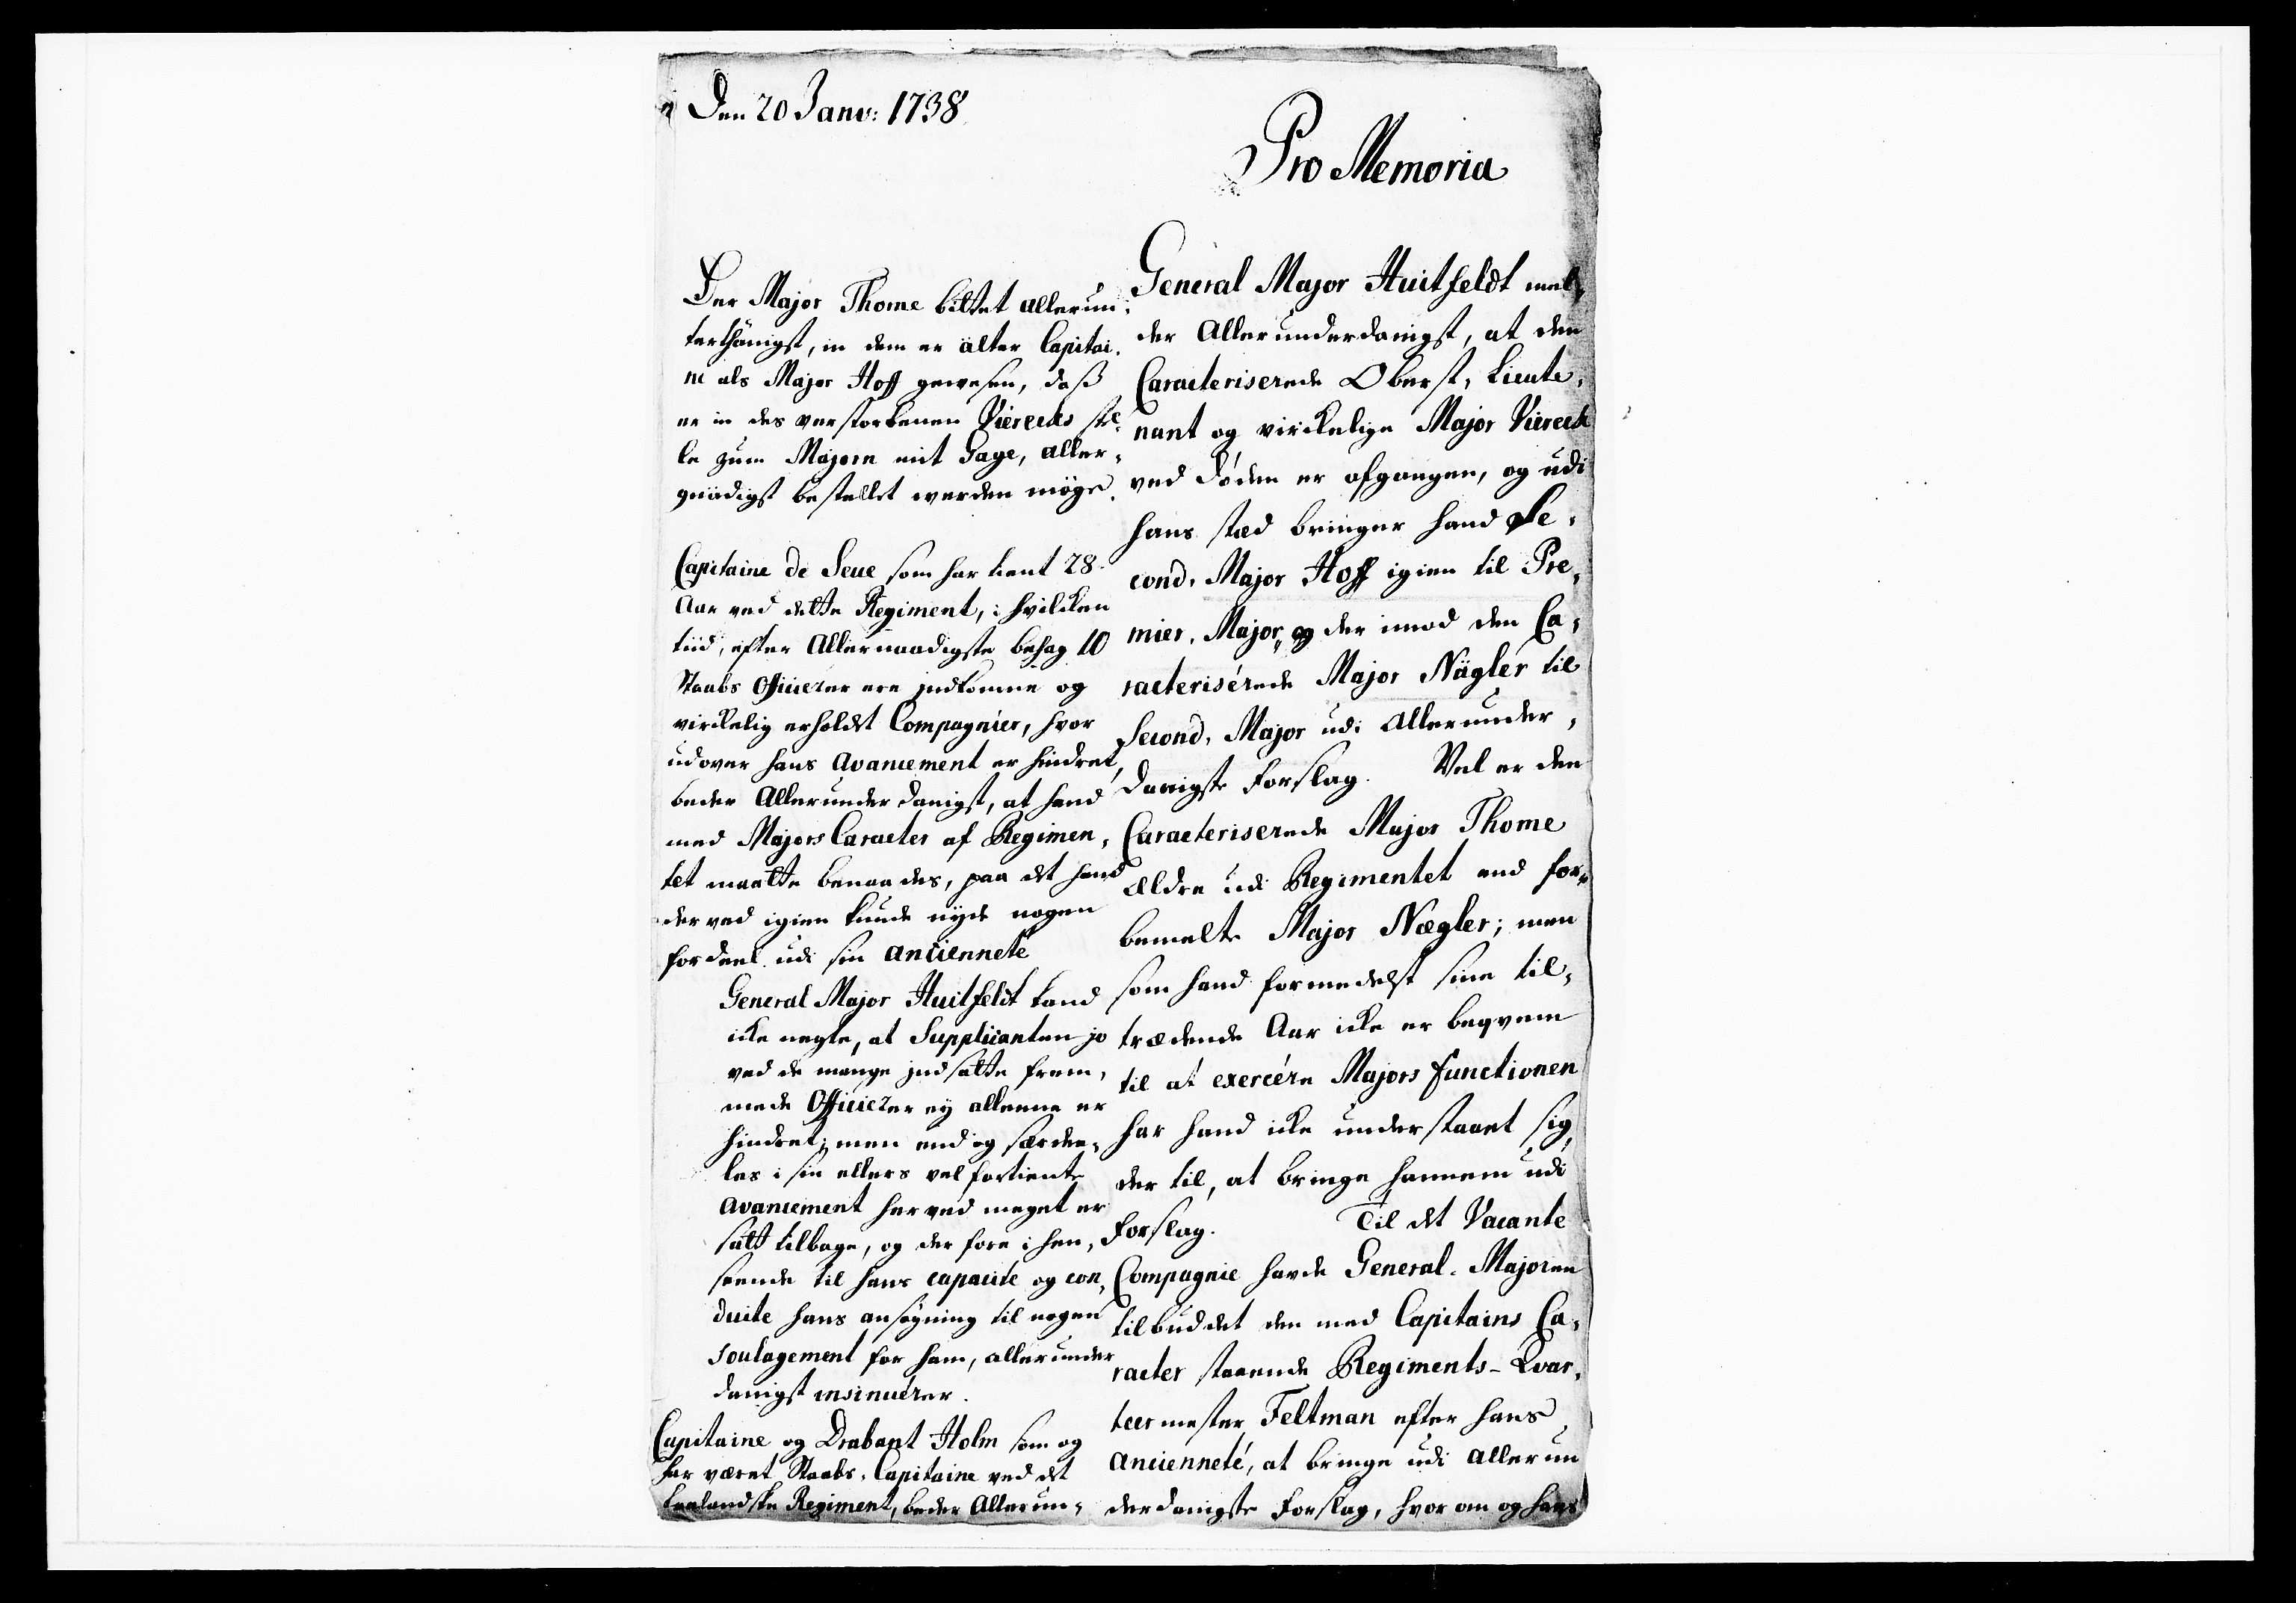 Den 20 Janv: 1738
Pro Memoria
Der Major Thome bittet allerun-
terthänigst, in dem er älter Capitai-
ne als Major Hoff gewesen, daß
er in des verstorbenen Vierecks stel-
le zum Majorn mit Gage, aller-
gnädigst bestellet werden möge.
Capitaine de Seue som har tient 28
Aar ved dette Regiment, i hvilcken
tiid, efter Allernaadigste behag 10
Staabs Officerer ere indkomne og
virckelig erholdet Compagnier, hvor
udover hans avancement er hindret,
beder Allerunderdanigst, at hand
med Majors Caracter af Regimen-
tet maatte benaades, paa det hand
derved igien kunde nyde nogen
fordeel udi sin ancienneté
General Major Huitfeldt kand
icke negte, at Supplicanten jo
ved de mange indsatte frem-
mede Officerer ey alleene er
hindret; men endog særdee-
les i sin ellers vel fortiente
avancement herved meget er
satt tilbage, og derfore i hen-
seende til hans capacite og con-
duite hans ansøgning til nogen
soulagement for ham, allerunder
danigst insinuérer.
Capitaine og Drabant Holm som og
har været Staabs-Capitaine ved det
Regiment, beder Allerun-
General Major Huitfeldt mel-
der Allerunderdanigst, at den
Caracteriserede Oberst-Lieute-
nant og virckelige Major Viereck
ved døden er afgangen, og udi
hans sted bringer hand Se-
cond-Major Hoff igien til Pre-
mier-Major, og der imod den Ca-
racterisérede Major Nägler til
Second-Major udi Allerunder-
danigste forslag. Vel er den
Caracteriserede Major Thome
ældre udi Regimentet end for-
bemelte Major Nægler; men
som hand formedelst sine til-
trædende Aar icke er beqvem
til at exercére Majors functionen
har hand icke understaaet sig
der til, at bringe hannem udi
forslag. Til det Vacante
Compagnie havde General-Majoren
tilbuddet den med Capitains Ca-
racter staaende Regiments-Qvar-
teermester Feltman efter hans
ancienneté, at bringe udi allerun
derdanigste forslag, hvor om og hans